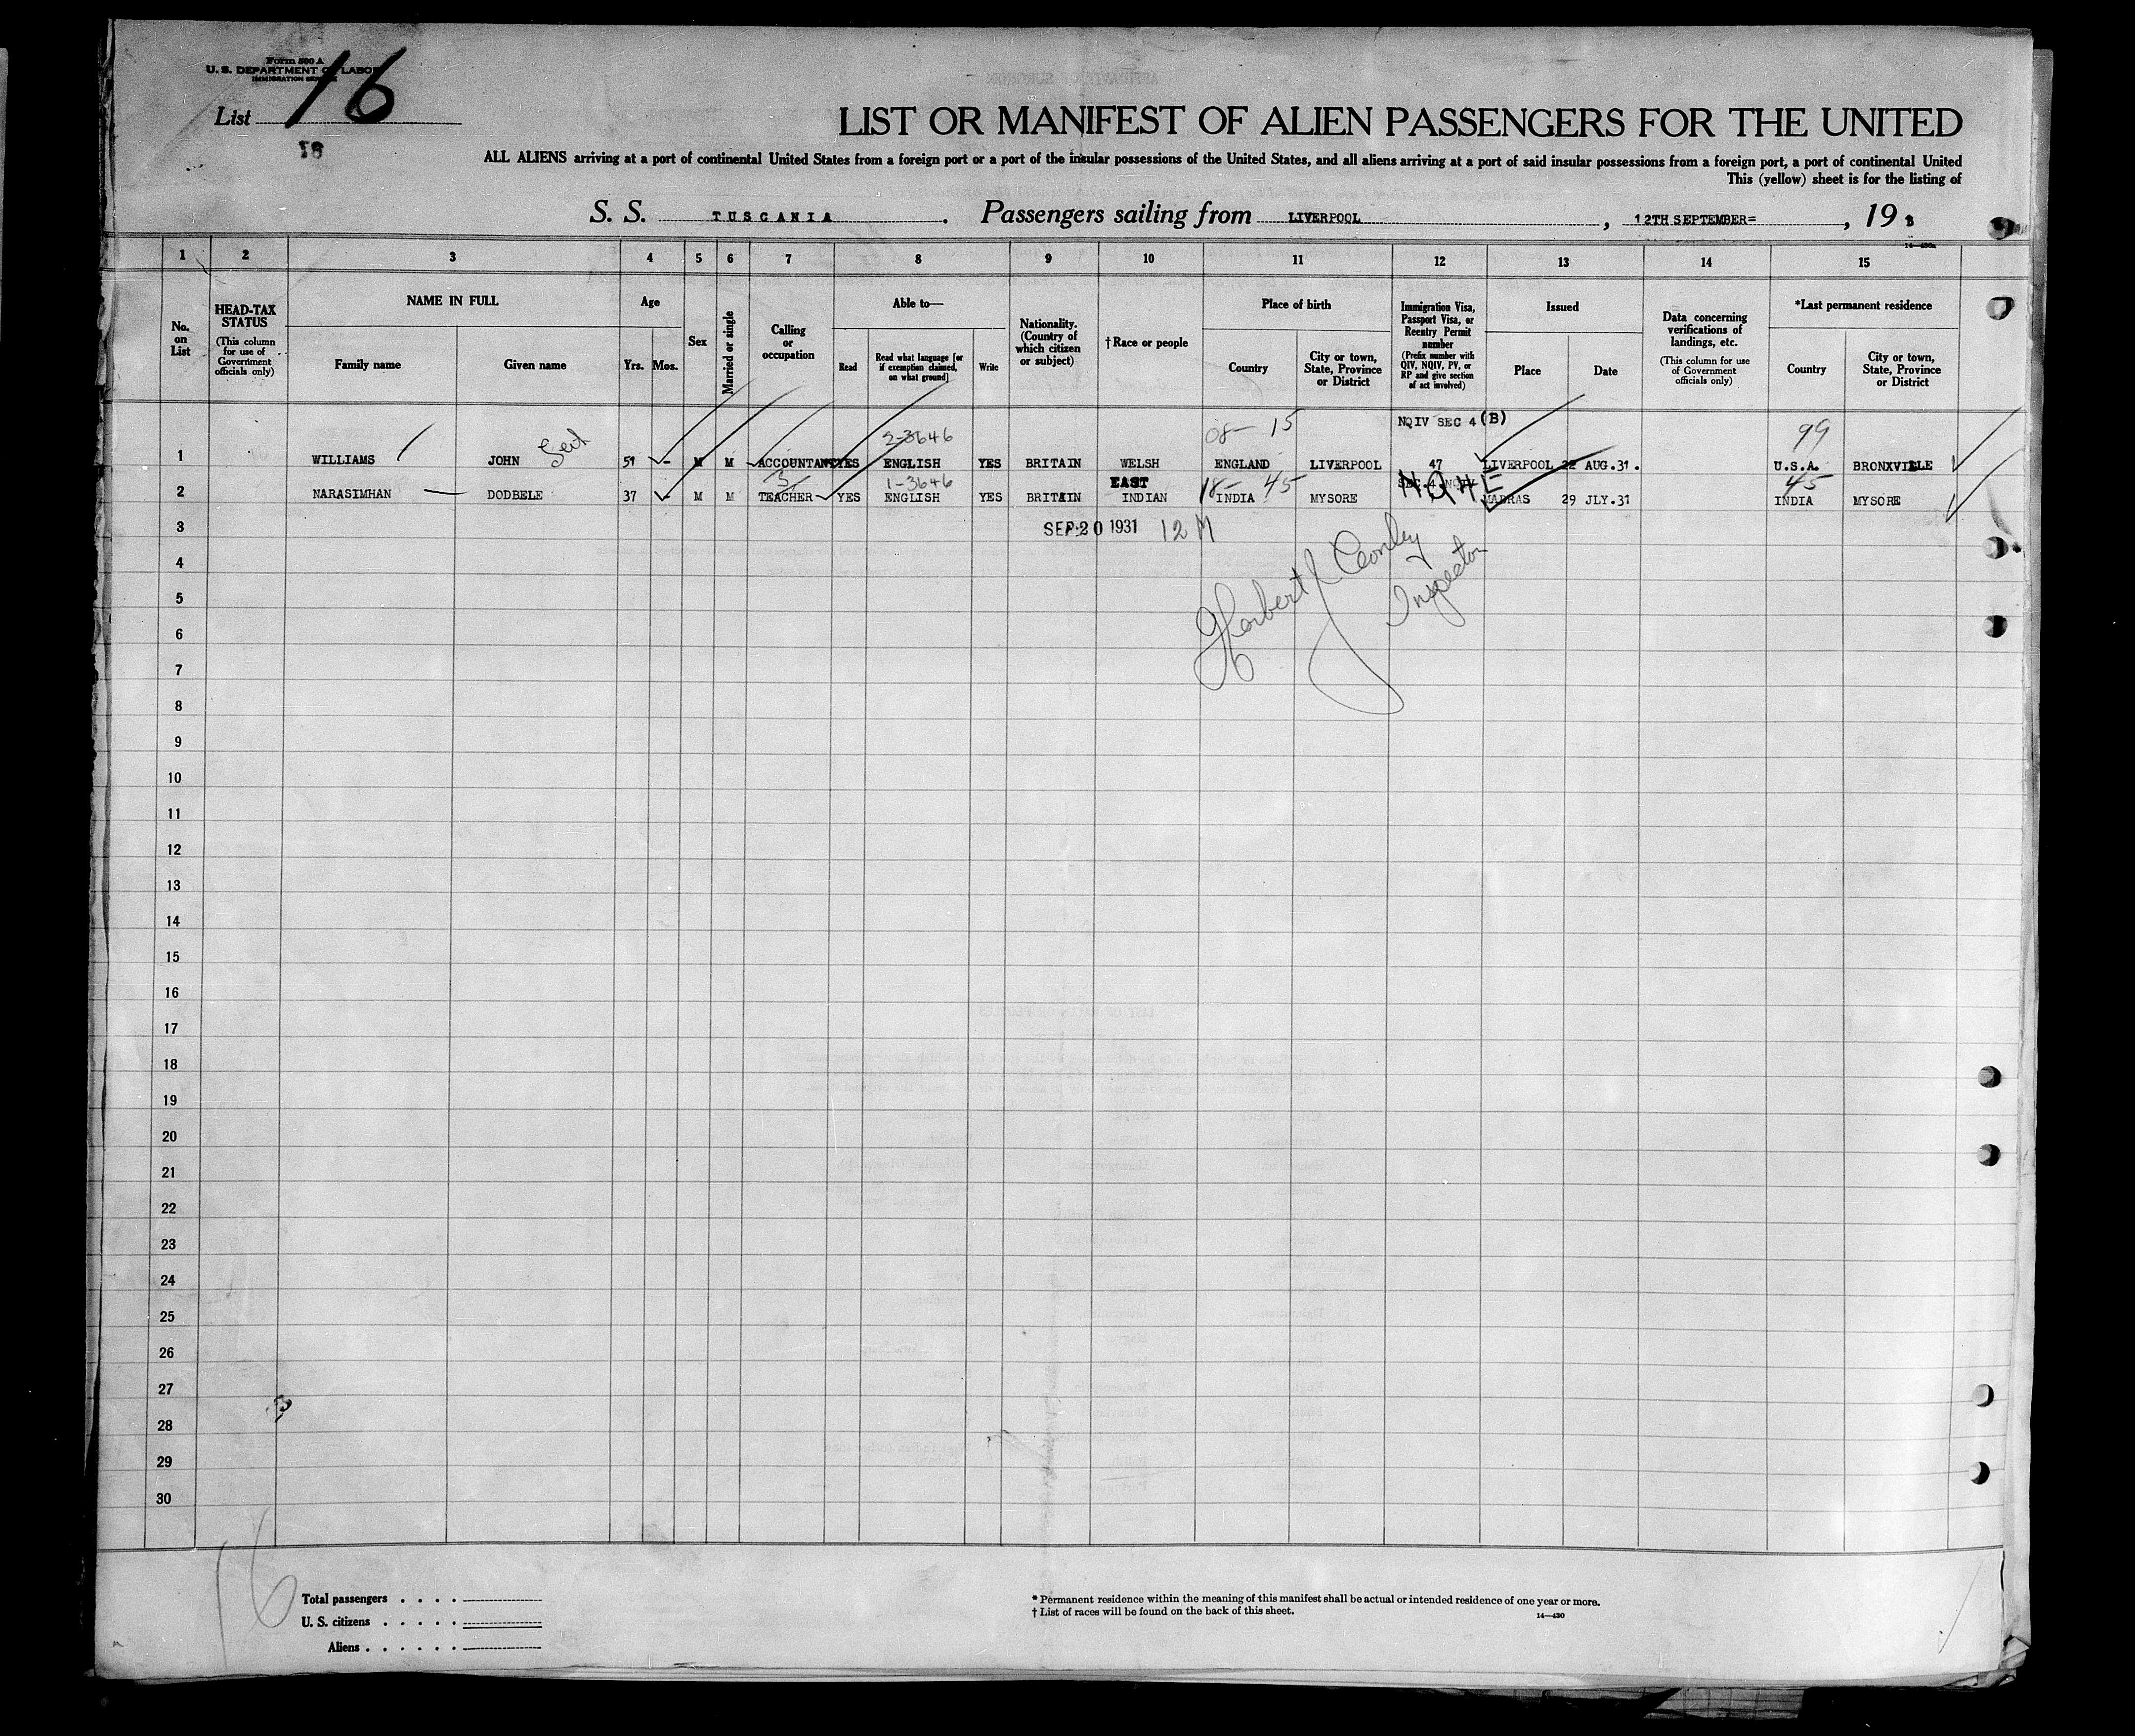 Form 500 A
U. S. DEPARTMENT OF LABOR
IMMIGRATION SERVICE
List 16
78
LIST OR MANIFEST OF ALIEN PASSENGERS FOR THE UNITED
ALL ALIENS arriving at a port of continental United States from a foreign port or a port of the insular possessions of the United States, and all aliens arriving at a port of said insular possessions from a foreign port, a port of continental United
This (yellow) sheet is for the listing of
S. S. TUSCANIA. Passengers sailing from LIVERPOOL, 12TH SEPTEMBER=, 19
1 2 3 4 5 6 7 8 9 10 11 12 13 14 15
No. on List
HEAD-TAX STATUS
(This column for use of Government officials only)
NAME IN FULL
Family name
Given name
Age
Yrs. Mos.
Sex
Married or single
Calling or occupation
Able to—
Read
Read what language [or if exemption claimed, on what ground]
Write
Nationality. (Country of which citizen or subject)
†Race or people
Place of birth
Country
City or town, State, Province or District
Immigration Visa, Passport Visa, or Reentry Permit number
(Prefix number with QIV, NQIV, PV, or RP and give section of act involved)
Issued
Place
Date
Data concerning verifications of landings, etc.
(This column for use of Government officials only)
*Last permanent residence
Country
City or town, State, Province or District
2-3646 08- 15 NQIV SEC 4 (B) 99
1 WILLIAMS JOHN 51 - M M ACCOUNTANT YES ENGLISH YES BRITAIN WELSH ENGLAND LIVERPOOL 47 LIVERPOOL 22 AUG.31. U.S.A. BRONXVILLE
1-3646 EAST 18- 45 SEC.4 NQIV 45
2 NARASIMHAN DODBELE 37 - M M TEACHER YES ENGLISH YES BRITAIN INDIAN INDIA MYSORE MADRAS 29 JLY.31 INDIA MYSORE
3 SEP 20 1931 12 M
4
5
6
7
8
9
10
11
12
13
14
15
16
17
18
19
20
21
22
23
24
25
26
27
28
29
30
Herbert J Conley
Inspector
16
Total passengers . . . .
U. S. citizens . . . . .
Aliens . . . . . .
* Permanent residence within the meaning of this manifest shall be actual or intended residence of one year or more.
† List of races will be found on the back of this sheet.
14—430